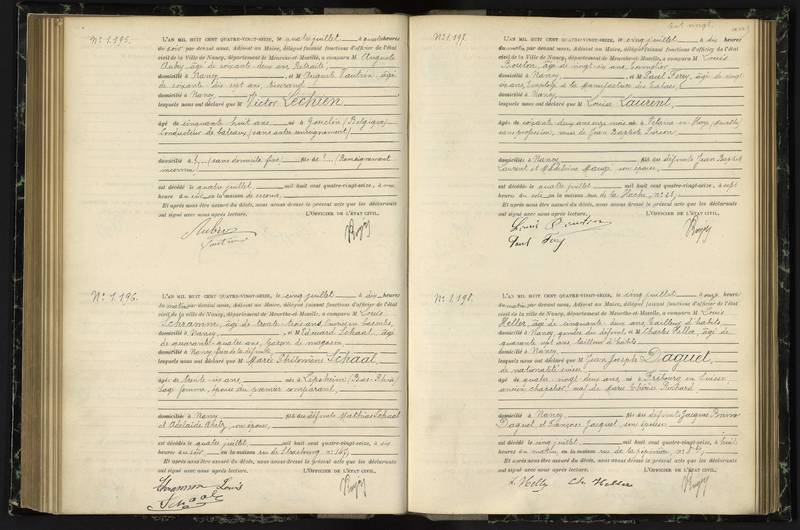 N° 1.195.
L'AN MIL HUIT CENT QUATRE-VINGT-SEIZE, le quatre juillet à heures
du soir par devant nous, Adjoint au Maire, délégué faisant fonctions d'officier de l'état
civil de la Ville de Nancy, département de Meurthe-et-Moselle, a comparu M. Auguste
âgé de soixante-deux ans, Retraité,
domicilié à Nancy, et M. Auguste Vautrin, âgé
de soixante-dix-sept ans,
domicilié à Nancy
lesquels nous ont déclaré que M. Victor Lechien,
âgé de cinquante huit ans né à (Belgique)
Conducteur de bateaux, (sans autre renseignement)
domicilié à ?... (sans domicile fixe) fils de ?... (Renseignement
inconnu)
est décédé le quatre juillet mil huit cent quatre-vingt-seize, à
heures du soir en la maison de secours,
Et après nous être assuré du décès, nous avons dressé le présent acte que les déclarants
ont signé avec nous après lecture. L'OFFICIER DE L'ÉTAT CIVIL,
N° 1.196.
L'AN MIL HUIT CENT QUATRE-VINGT-SEIZE, le cinq juillet à dix heures
du matin par devant nous, Adjoint au Maire, délégué faisant fonctions d'officier de l'état
civil de la Ville de Nancy, département de Meurthe-et-Moselle, a comparu M. Louis
Schramm, âgé de trente-trois ans,
domicilié à Nancy, et M. Edouard Schaal, âgé
de quarante-quatre ans, Garçon de magasin
domicilié à Nancy, frère de la défunte,
lesquels nous ont déclaré que M. Marie Philomène Schaal,
âgée de trente-six ans, née à (Bas-Rhin)
Sage femme, épouse du premier comparant,
domiciliée à Nancy fille des défunts Mathias Schaal
et Adélaïde son épouse,
est décédée le quatre juillet mil huit cent quatre-vingt-seize, à six
heures du soir en la maison rue de Strasbourg, n° 167,
Et après nous être assuré du décès, nous avons dressé le présent acte que les déclarants
ont signé avec nous après lecture. L'OFFICIER DE L'ÉTAT CIVIL,
Schramm Louis
Schaal
Cent vingt.
L'AN MIL HUIT CENT QUATRE-VINGT-SEIZE, le cinq juillet à dix heures
du matin, par devant nous, Adjoint au Maire, délégué faisant fonctions d'officier de l'état
civil de la Ville de Nancy, département de Meurthe-et-Moselle, a comparu M. Louis
âgé de vingt-six ans,
domicilié à Nancy, et M. Paul Ferry, âgé de vingt
six ans, Employé à la Manufacture des Tabacs,
domicilié à Nancy
lesquels nous ont déclaré que M. Louise Laurent,
âgée de soixante deux ans onze mois née à
sans profession, veuve de Jean Baptiste
domiciliée à Nancy fille des défunts Jean Baptiste
Laurent et Madeleine son épouse,
est décédée le quatre juillet mil huit cent quatre-vingt-seize, à sept
heures du soir en la maison rue de la Hache,
Et après nous être assuré du décès, nous avons dressé le présent acte que les déclarants
ont signé avec nous après lecture. L'OFFICIER DE L'ÉTAT CIVIL,
Paul Ferry
N° 1.198.
L'AN MIL HUIT CENT QUATRE-VINGT-SEIZE, le cinq juillet à onze heures
du matin par devant nous, Adjoint au Maire, délégué faisant fonctions d'officier de l'état
civil de la Ville de Nancy, département de Meurthe-et-Moselle, a comparu M. Louis
Heller, âgé de cinquante-deux ans, Tailleur d'habits
domicilié à Nancy, gendre du défunt et M. Charles Heller, âgé de
quarante sept ans, tailleur d'habits
domicilié à Nancy
lesquels nous ont déclaré que M. Jean Joseph Daguet,
de nationalité suisse,
âgé de quatre-vingt-deux ans, né à Fribourg en Suisse,
ancien charretier, de Marie Thérèse
domicilié à Nancy fils des défunts Jacques
Daguet et Françoise Jacquet, son épouse
est décédé le cinq juillet mil huit cent quatre-vingt-seize, à huit
heures du matin en la maison rue de la
Et après nous être assuré du décès, nous avons dressé le présent acte que les déclarants
ont signé avec nous après lecture. L'OFFICIER DE L'ÉTAT CIVIL,
L. Heller Ch. Heller